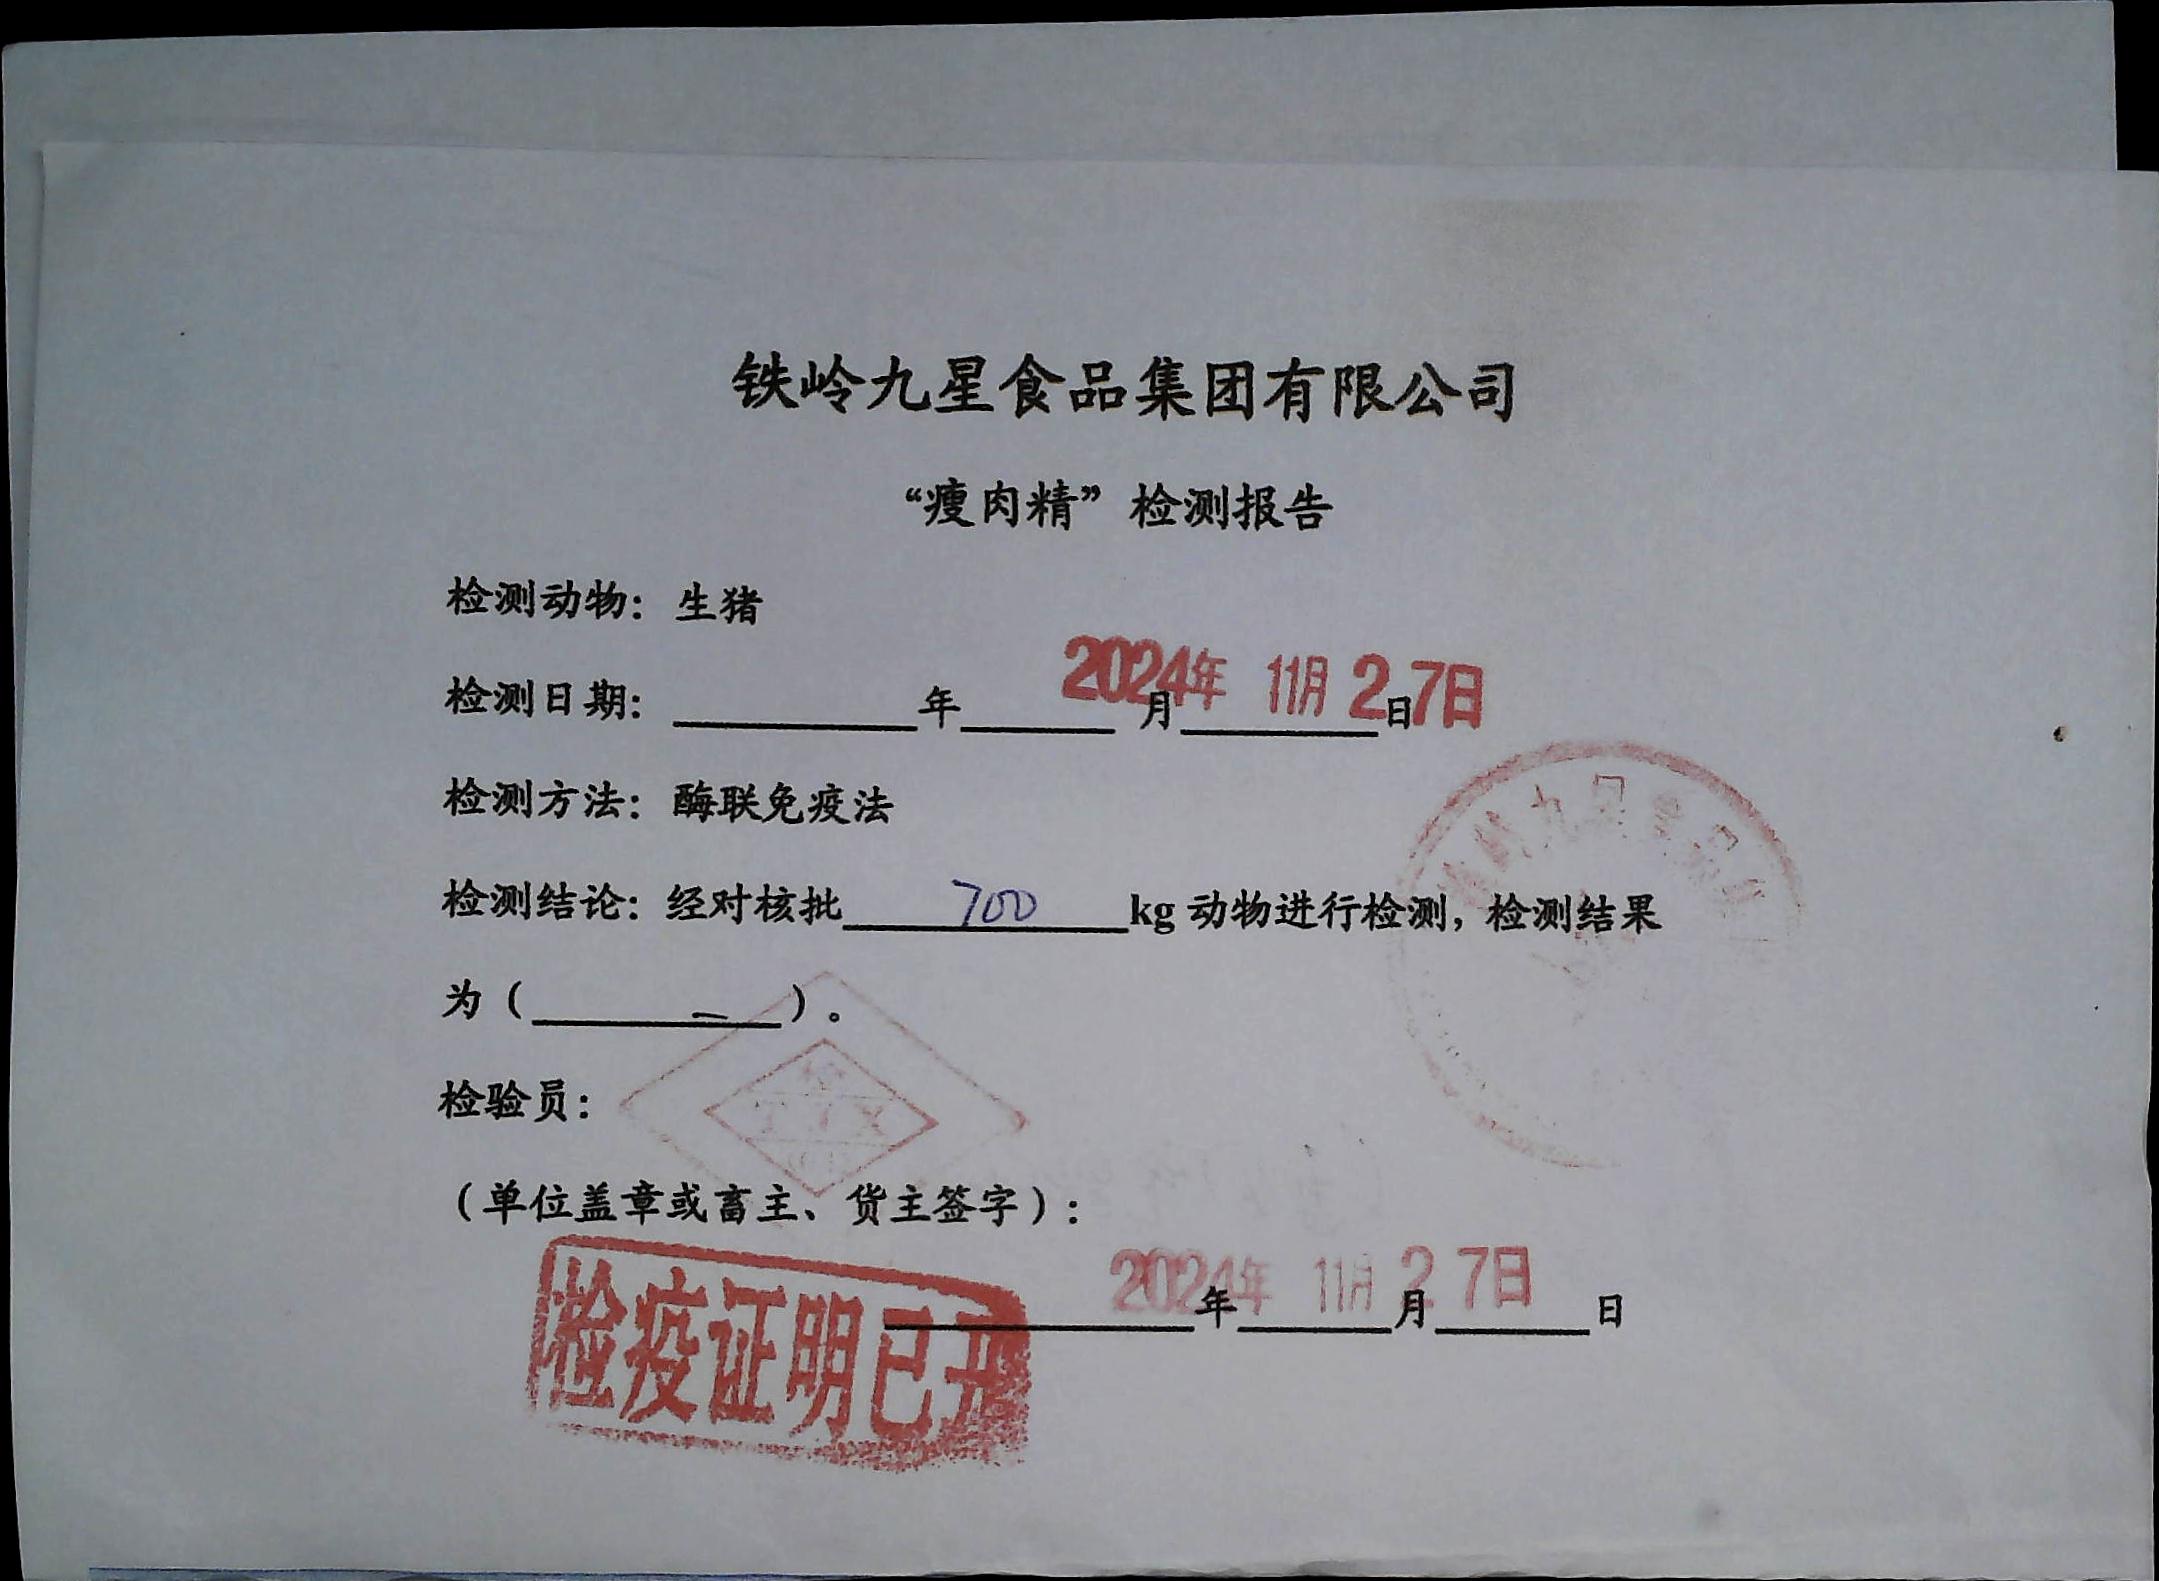 铁岭九星食品集团有限公司
“瘦肉精”检测报告
检测动物：生猪
检测日期：年月日
2024年 11月 27日
检测方法：酶联免疫法
检测结论：经对核批 700 kg 动物进行检测，检测结果
为（ — ）。
检验员：
（单位盖章或畜主、货主签字）：
2024年 11月 27日
年月日
检疫证明已开